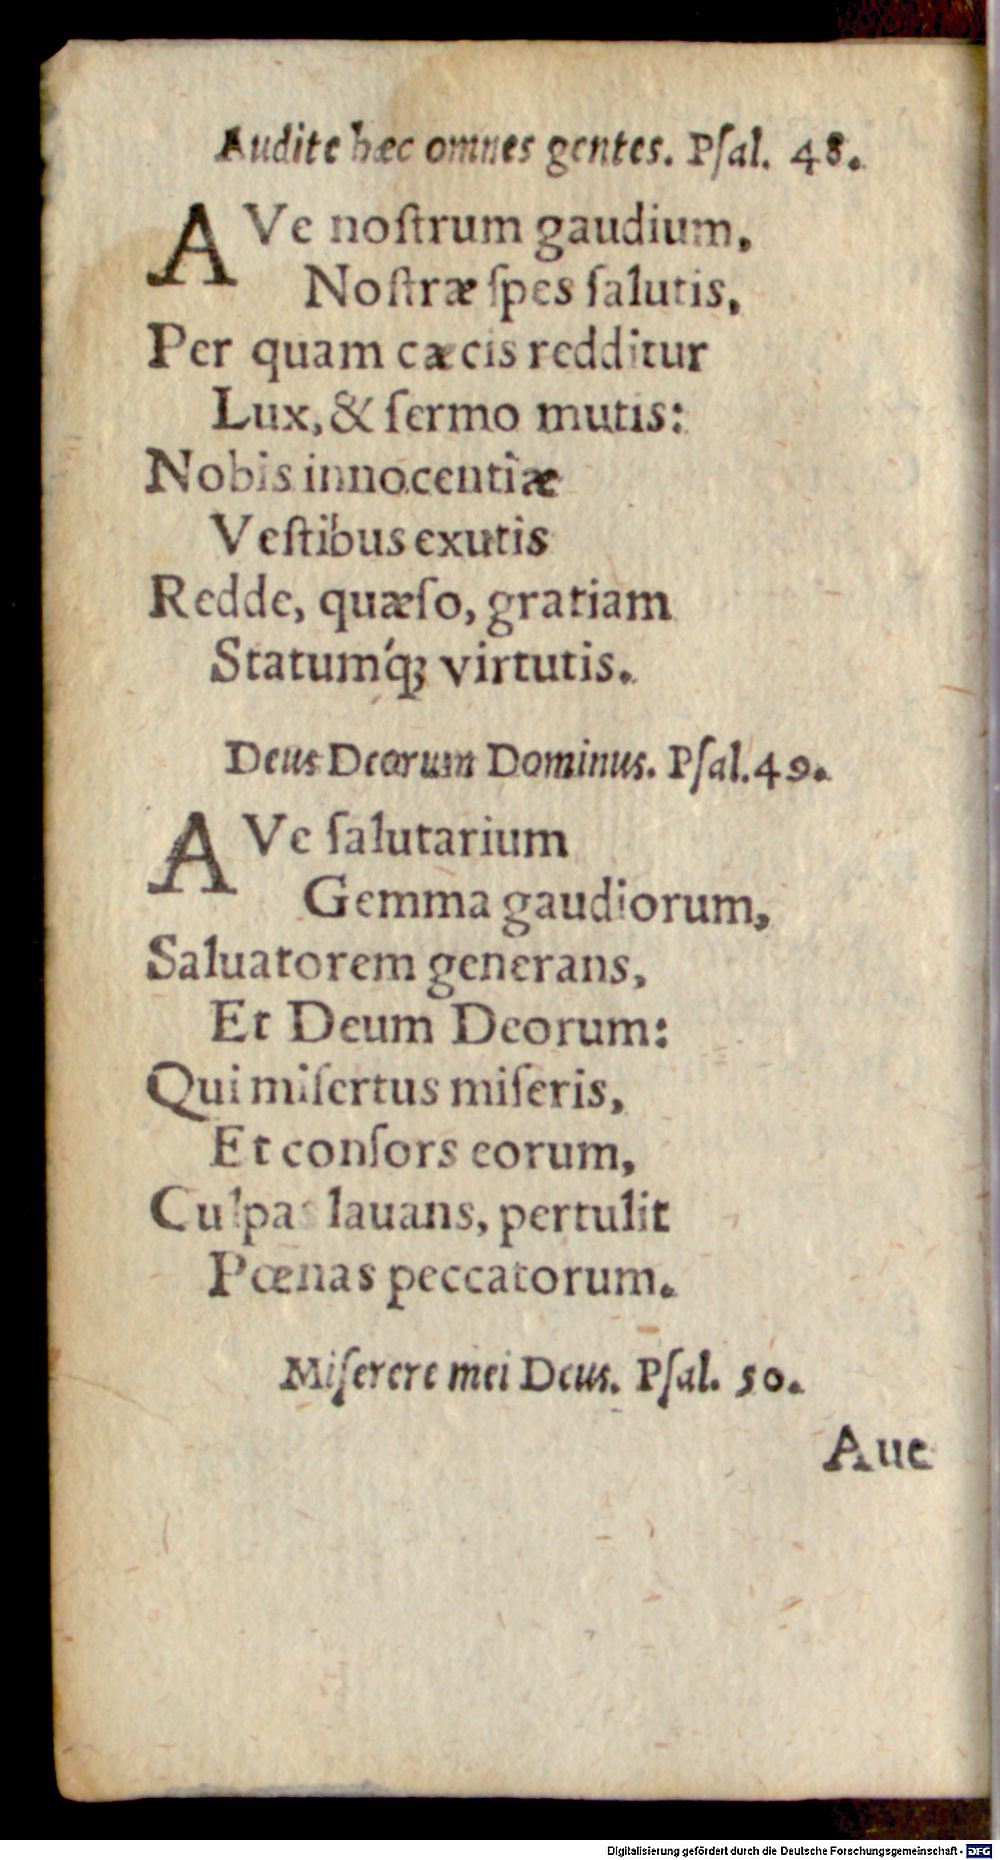 Audite hæc omnes gentes. Pſal. 48.
AVe noſtrum gaudium,
Noſtræ ſpes ſalutis,
Per quam cæcis redditur
Lux, & ſermo mutis:
Nobis innocentiæ
Veſtibus exutis
Redde, quæſo, gratiam
Statumq́; virtutis.
Deus Deorum Dominus. Pſal. 49.
AVe ſalutarium
Gemma gaudiorum,
Saluatorem generans,
Et Deum Deorum:
Qui miſertus miſeris,
Et conſors eorum,
Culpas lauans, pertulit
Pœnas peccatorum.
Miſerere mei Deus. Pſal. 50.
Aue
Digitalisierung gefördert durch die Deutsche Forschungsgemeinschaft - DFG